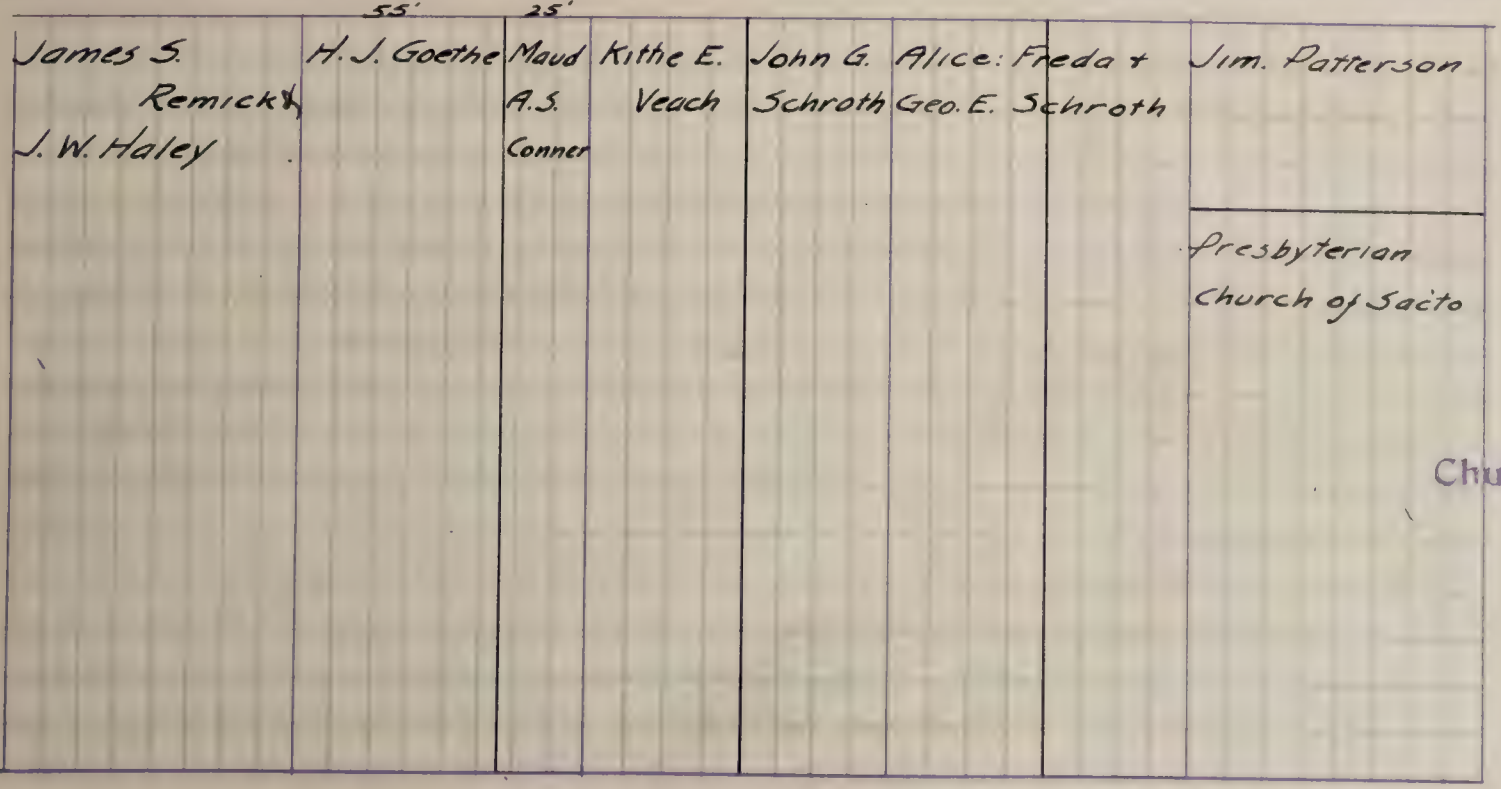 55'
25'
James S.
Remick &
J. W. Haley
H. J. Goethe
Maud
A.S.
Conner
Kithe E.
Veach
John G.
Schroth
Alice: Freda +
Geo. E. Schroth
Jim. Patterson
Presbyterian
Church of Sacto
Chu